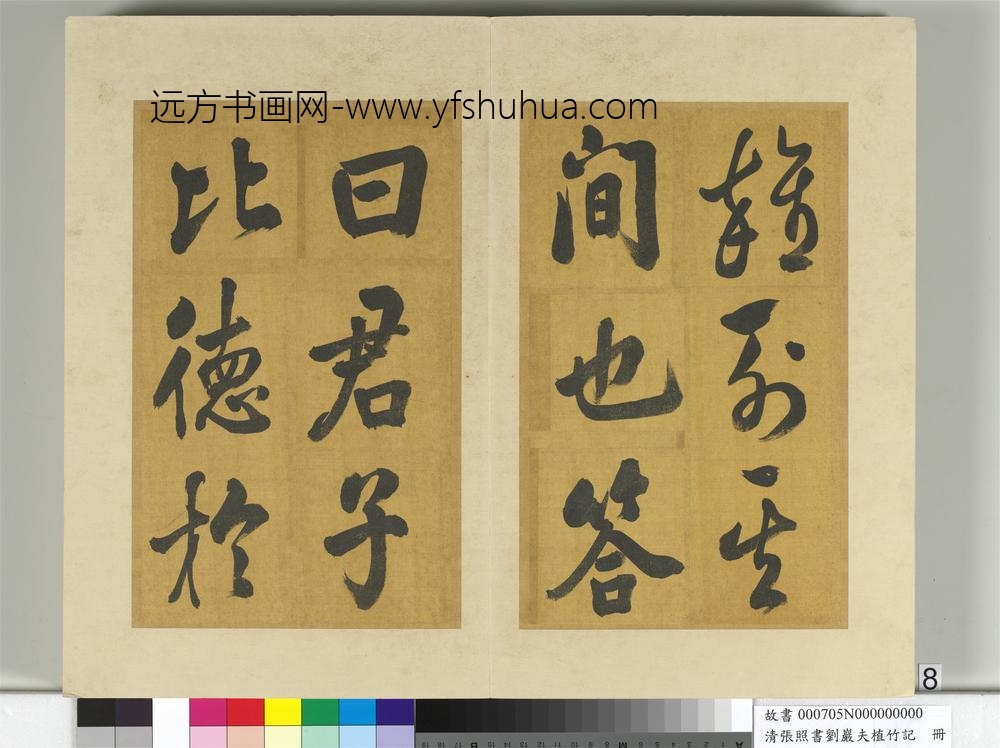 远方书画网-www.yfshuhua.com
雜列其
間也答
曰君子
比德於
8
故書 000705N000000000
清張照書劉巖夫植竹記 冊